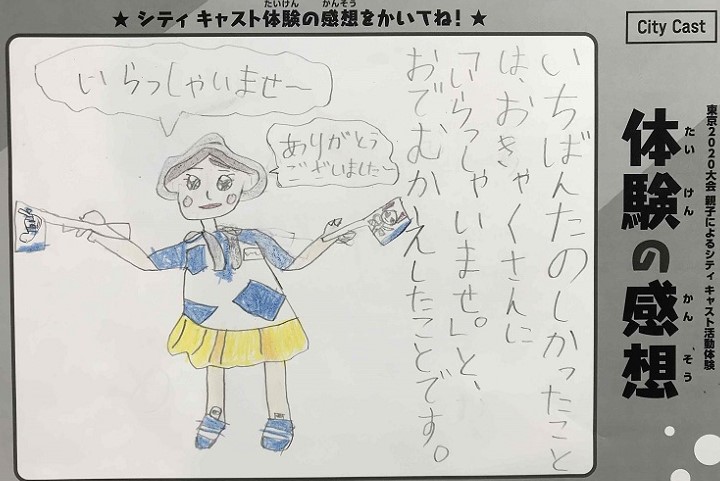 ★ シティ キャスト体験の感想をかいてね! ★
たいけん かんそう
City Cast
東京2020大会 親子によるシティ キャスト活動体験
体験の感想
たい けん かん そう
いちばんたのしかったこと
は、おきゃくさんに
「いらっしゃいませ。」と、
おでむかえしたことです。
いらっしゃいませ〜
ありがとう
ございました〜